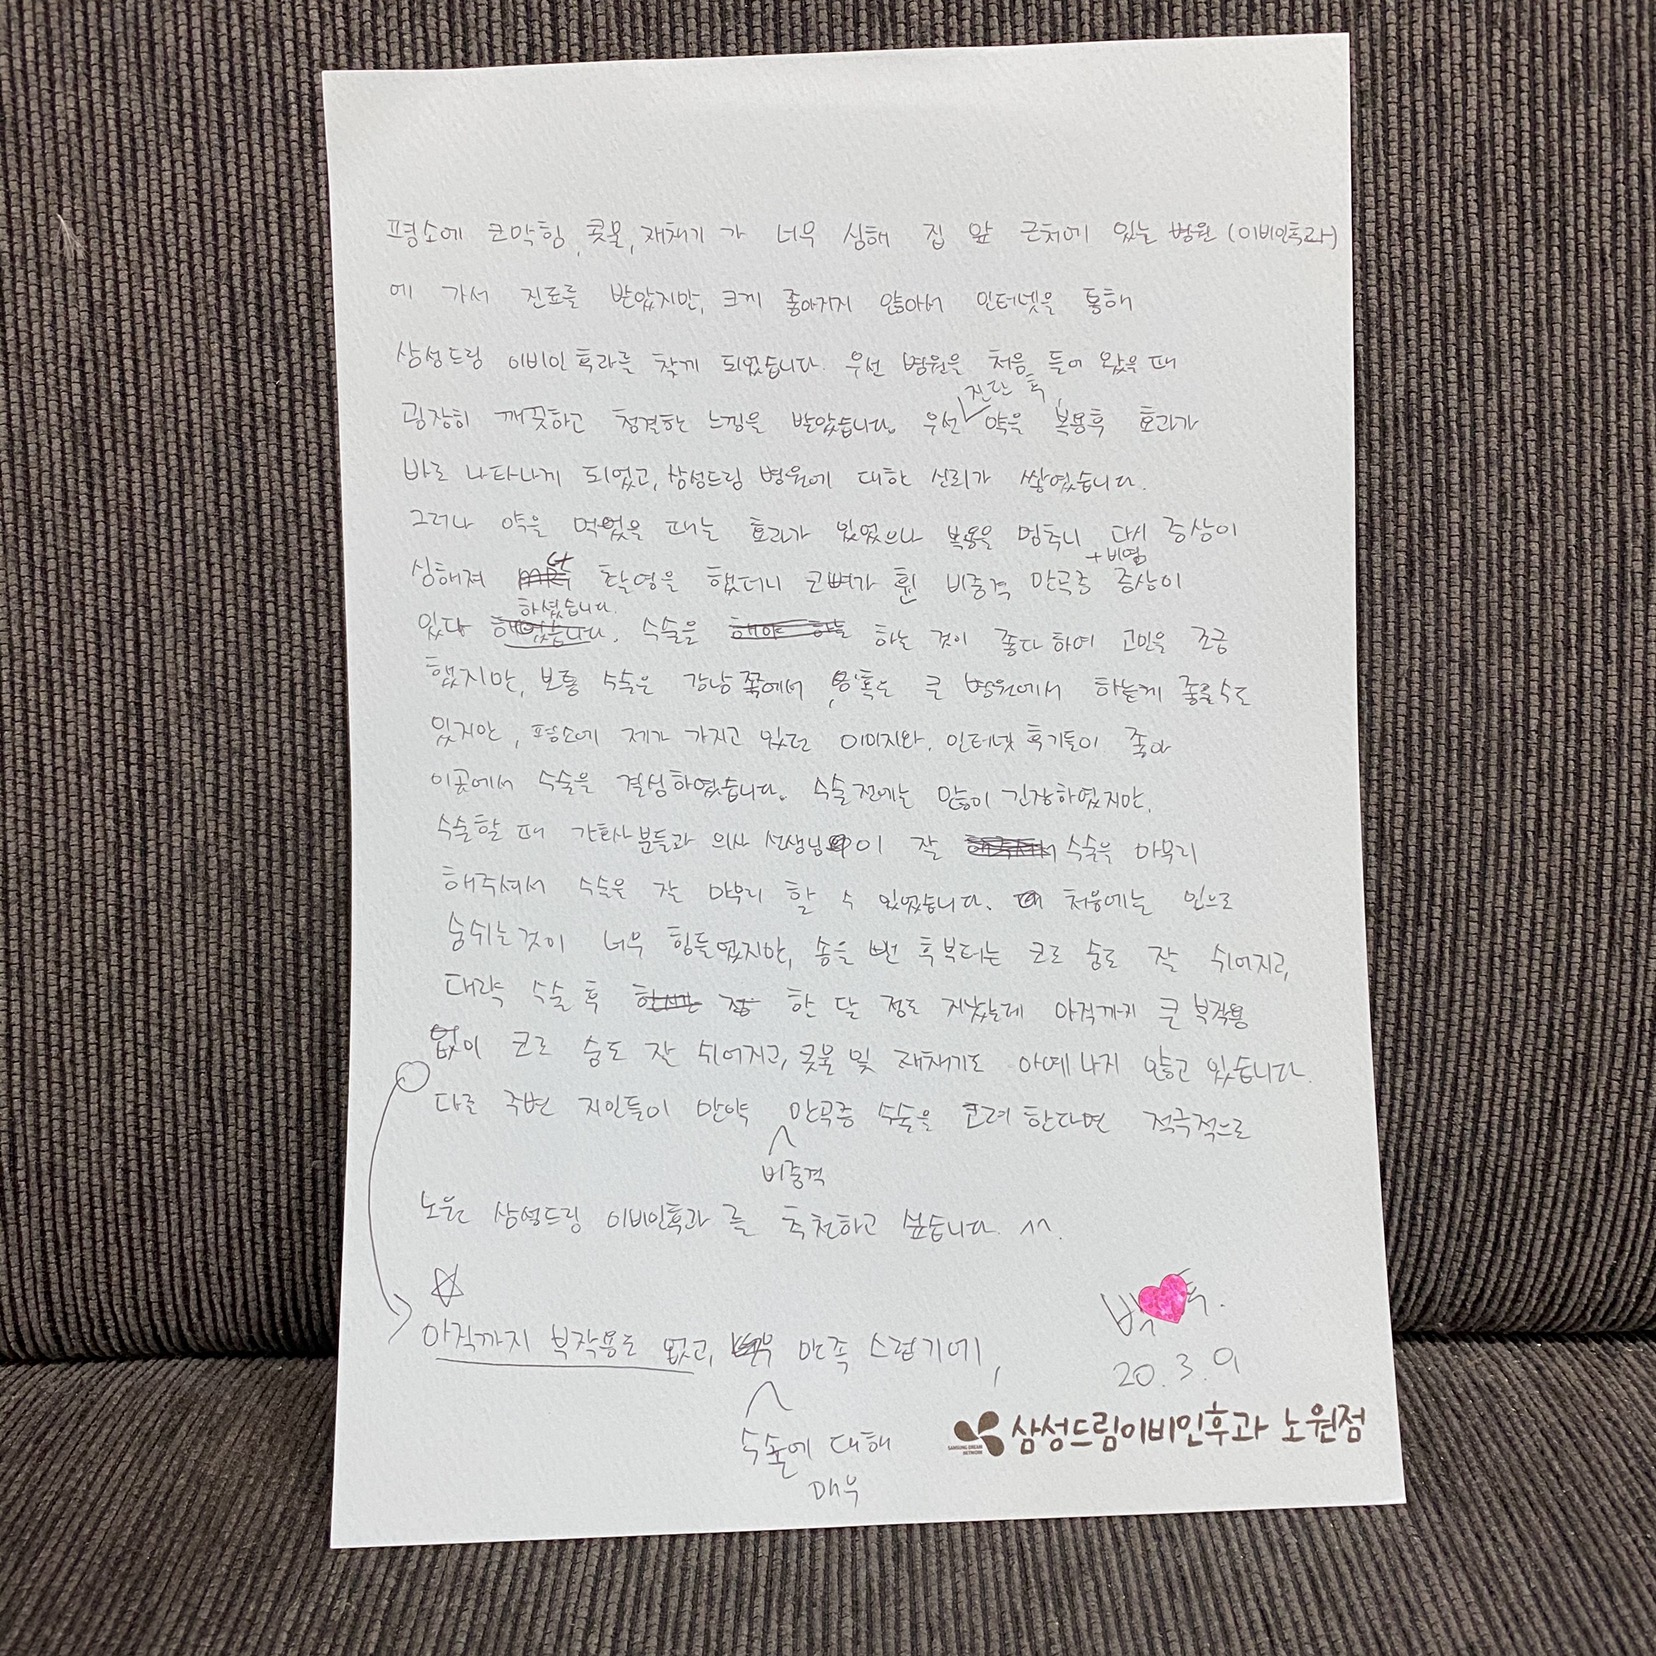 평소에 코막힘, 콧물, 재채기 가 너무 심해 집 앞 근처에 있는 병원 (이비인후과)
에 가서 진료를 받았지만, 크게 좋아지지 않아서 인터넷을 통해
삼성드림 이비인후과를 찾게 되었습니다. 우선 병원을 처음 들어 왔을 때
진단 후,
굉장히 깨끗하고 청결한 느낌을 받았습니다. 우선 약을 복용후 효과가
바로 나타나게 되었고, 삼성드림 병원에 대한 신뢰가 쌓였습니다.
그러나 약을 먹었을 때는 효과가 있었으나 복용을 멈추니 다시 증상이
+ 비염
심해져 CT 촬영을 했더니 코뼈가 휜 비중격 만곡증 증상이
하셨습니다.
있다 수술을 하는 것이 좋다 하여 고민을 조금
했지만, 보통 수술은 강남 쪽에서, 혹은 큰 병원에서 하는게 좋을수도
있지만, 평소에 제가 가지고 있던 이미지와, 인터넷 후기들이 좋아
이곳에서 수술을 결심하였습니다. 수술전에는 많이 긴장하였지만,
수술할 때 간호사 분들과 의사 선생님이 잘 수술을 마무리
해주셔서 수술을 잘 마무리 할 수 있었습니다. 처음에는 입으로
숨쉬는것이 너무 힘들었지만, 솜을 뺀 후부터는 코로 숨도 잘 쉬어지고,
대략 수술 후 한 달 정도 지났는데 아직까지 큰 부작용
없이 코로 숨도 잘 쉬어지고, 콧물 및 재채기도 아예 나지 않고 있습니다.
다른 주변 지인들이 만약 만곡증 수술을 고려 한다면 적극적으로
비중격
노원 삼성드림 이비인후과 를 추천하고 싶습니다. ^^.
아직까지 부작용도 없고, 만족 스럽기에,
수술에 대해
매우
20. 3. 9
SAMSUNG DREAM NETWORK
삼성드림이비인후과 노원점